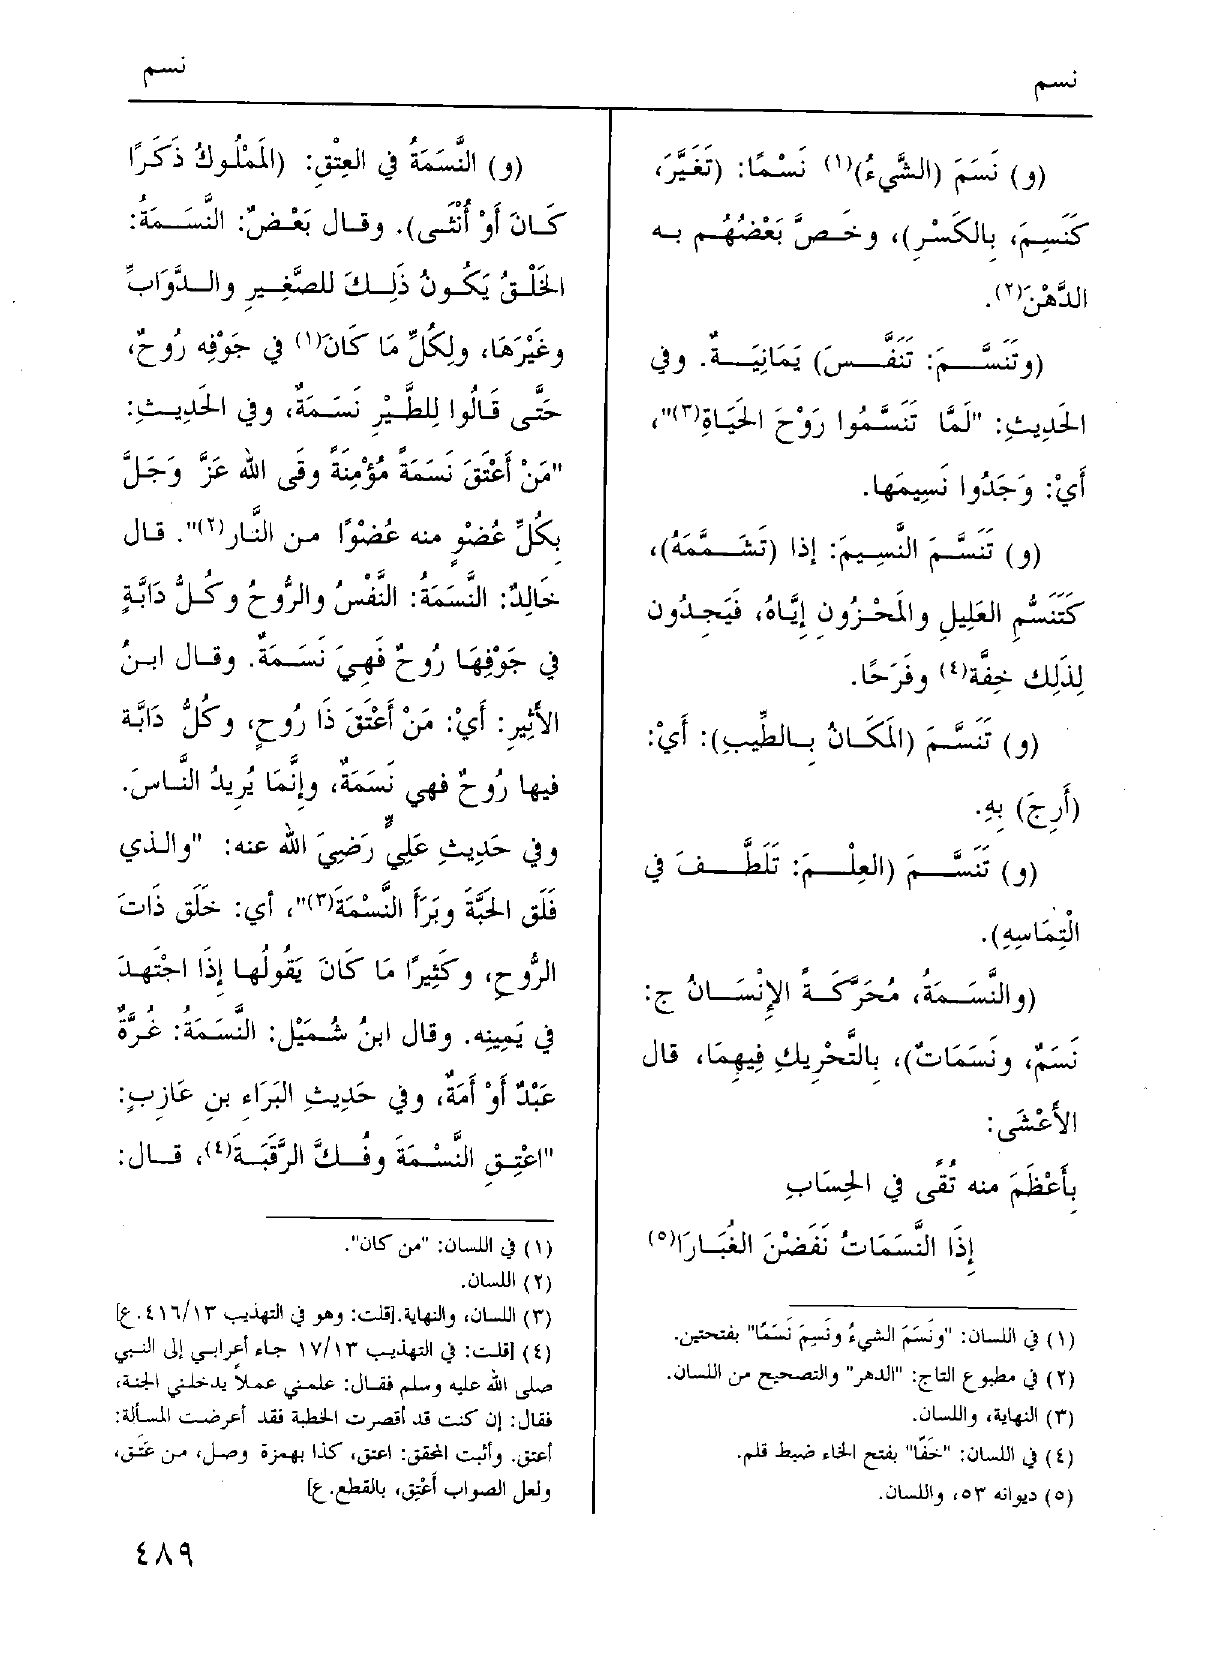 نسم
نسم
(و) نَسَمَ (الشَّيءُ)(١) نَسْمًا: (تَغَيَّرَ،
كَنَسِمَ، بِالكَسْرِ)، وخَصَّ بَعْضُهُم به
الدَّهْنَ(٢).
(وتَنَسَّمَ: تَنَفَّسَ) يَمَانِيَةٌ. وفي
الحَدِيثِ: "لَمَّا تَنَسَّمُوا رَوْحَ الحَيَاةِ(٣)"،
أيْ: وَجَدُوا نَسِيمَها.
(و) تَنَسَّمَ النَّسِيمَ: إذا (تَشَمَّمَهُ)،
كَتَنَسُّمِ العَلِيلِ والمَحْزُونِ إيَّاهُ، فَيَجِدُون
لِذَلِك خِفَّة(٤) وفَرَحًا.
(و) تَنَسَّمَ (المَكَانُ بالطِّيبِ): أَيْ:
(أَرِجَ) بِهِ.
(و) تَنَسَّمَ (العِلْمَ: تَلَطَّفَ في
الْتِمَاسِهِ).
(والنَّسَمَةُ، مُحَرَّكَةً الإِنْسَانُ ج:
نَسَمٌ، ونَسَمَاتٌ)، بِالتَّحْرِيكِ فِيهِمَا، قال
الأَعْشَى:
بِأَعْظَمَ منه تُقًى في الحِسَابِ
إِذَا النَّسَمَاتُ نَفَضْنَ الغُبَارَا(٥)
(١) في اللسان: "ونَسَمَ الشيءُ ونَسِمَ نَسَمًا" بفتحتين.
(٢) في مطبوع التاج: "الدهر" والتصحيح من اللسان.
(٣) النهاية، واللسان.
(٤) في اللسان: "خَفًّا" بفتح الخاء ضبط قلم.
(٥) ديوانه ٥٣، واللسان.
(و) النَّسَمَةُ في العِتْقِ: (المَمْلُوكُ ذَكَرًا
كَانَ أَوْ أُنْثَى). وقال بَعْضٌ: النَّسَمَةُ:
الخَلْقُ يَكُونُ ذَلِكَ للصَّغِيرِ والدَّوَابِّ
وغَيْرَهَا، ولِكُلِّ مَا كَانَ(١) في جَوْفِه رُوحٌ،
حَتَّى قَالُوا لِلطَّيْرِ نَسَمَةٌ، وفي الحَدِيثِ:
"مَنْ أَعْتَقَ نَسَمَةً مُؤْمِنَةً وقَى الله عَزَّ وَجَلَّ
بِكُلِّ عُضْوٍ منه عُضْوًا من النَّار(٢)". قال
خَالِدٌ: النَّسَمَةُ: النَّفْسُ والرُّوحُ وكُلُّ دَابَّةٍ
في جَوْفِهَا رُوحٌ فَهِيَ نَسَمَةٌ. وقال ابنُ
الأَثِيرِ: أَيْ: مَنْ أَعْتَقَ ذَا رُوحٍ، وكُلُّ دَابَّة
فيها رُوحٌ فهي نَسَمَةٌ، وإنَّمَا يُرِيدُ النَّاسَ.
وفي حَدِيثِ عَلِيٍّ رَضِيَ الله عنه: "والذي
فَلَقَ الحَبَّةَ وبَرَأَ النَّسْمَةَ(٣)"، أي: خَلَق ذَاتَ
الرُّوحِ، وكَثِيرًا مَا كَانَ يَقُولُها إذَا اجْتَهدَ
في يَمِينِه. وقال ابنُ شُمَيْل: النَّسَمَةُ: غُرَّةٌ
عَبْدٌ أَوْ أَمَةٌ، وفي حَدِيثِ البَرَاءِ بنِ عَازِبٍ:
"اعْتِقِ النَّسْمَةَ وفُكَّ الرَّقَبَةَ(٤)، قال:
(١) في اللسان: "من كان".
(٢) اللسان.
(٣) اللسان، والنهاية.[قلت: وهو في التهذيب ٤١٦/١٣. ع]
(٤) [قلت: في التهذيب ١٧/١٣ جاء أعرابي إلى النبي
صلى الله عليه وسلم فقال: علمني عملاً يدخلني الجنة،
فقال: إن كنت قد أقصرت الخطبة فقد أعرضت المسألة:
أعتق. وأثبت المحقق: اعتق، كذا بهمزة وصل، من عَتَق،
ولعل الصواب أَعْتِق، بالقطع. ع]
٤٨٩